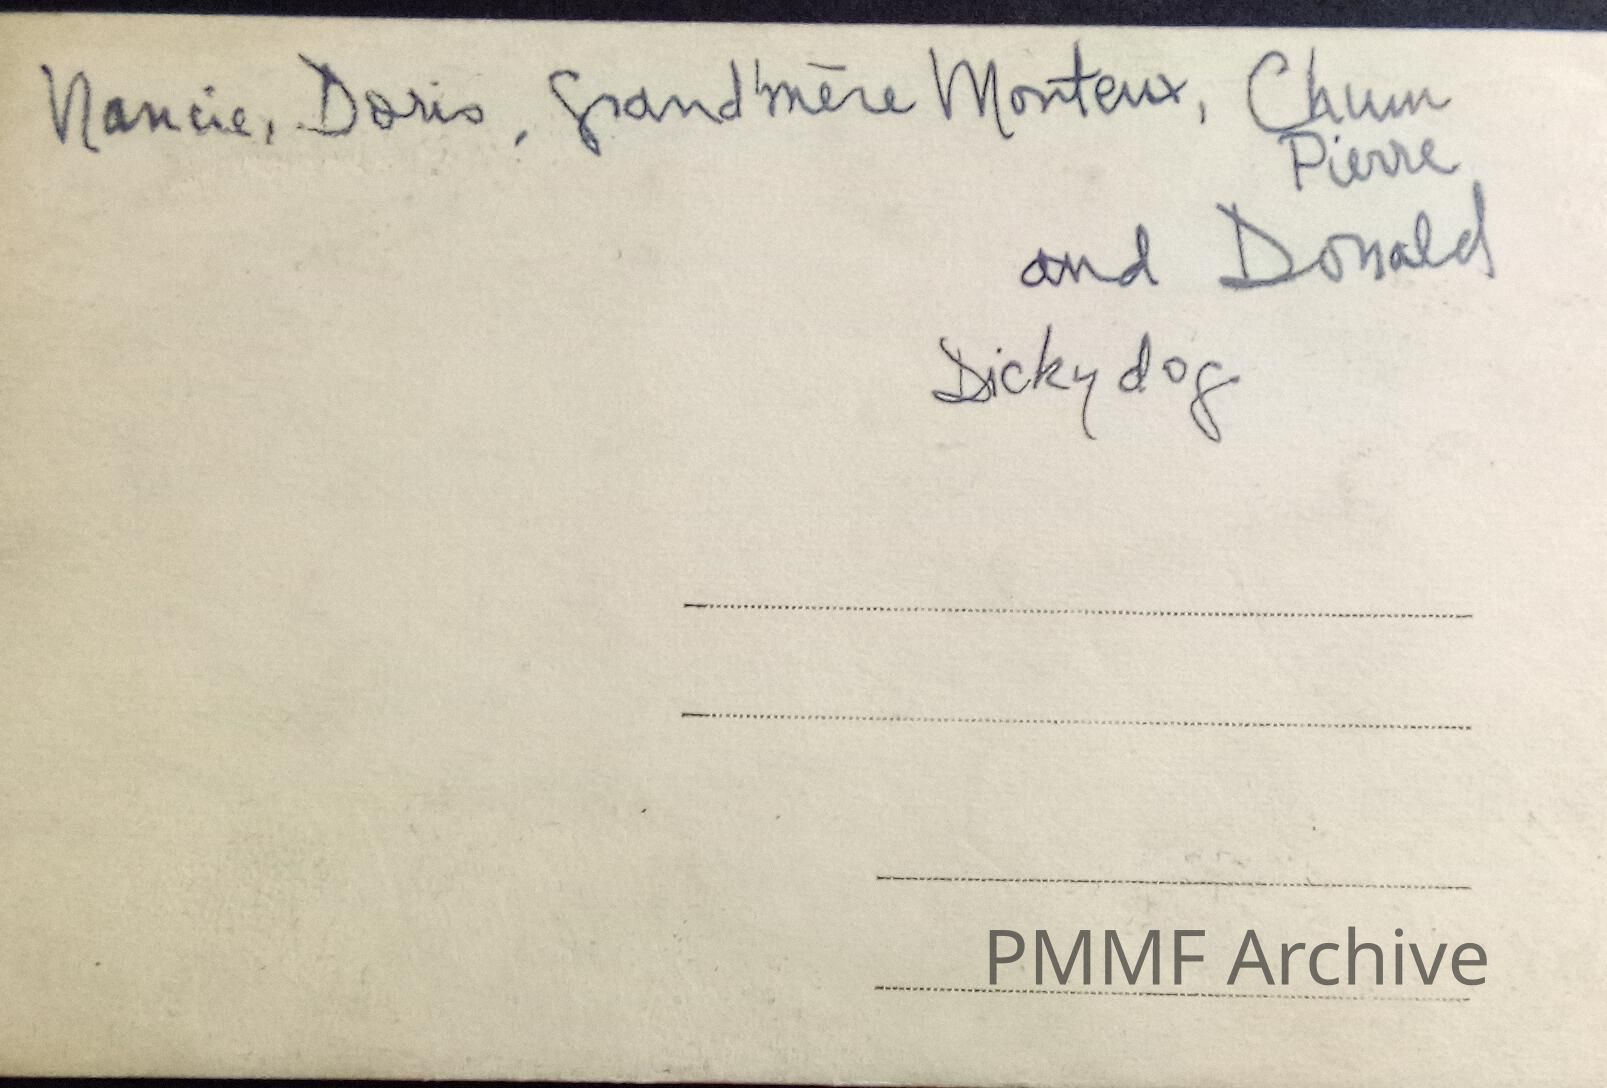 Nancie, Doris, Grand'mère Monteux, Chum
Pierre
and Donald
Dicky dog
PMMF Archive